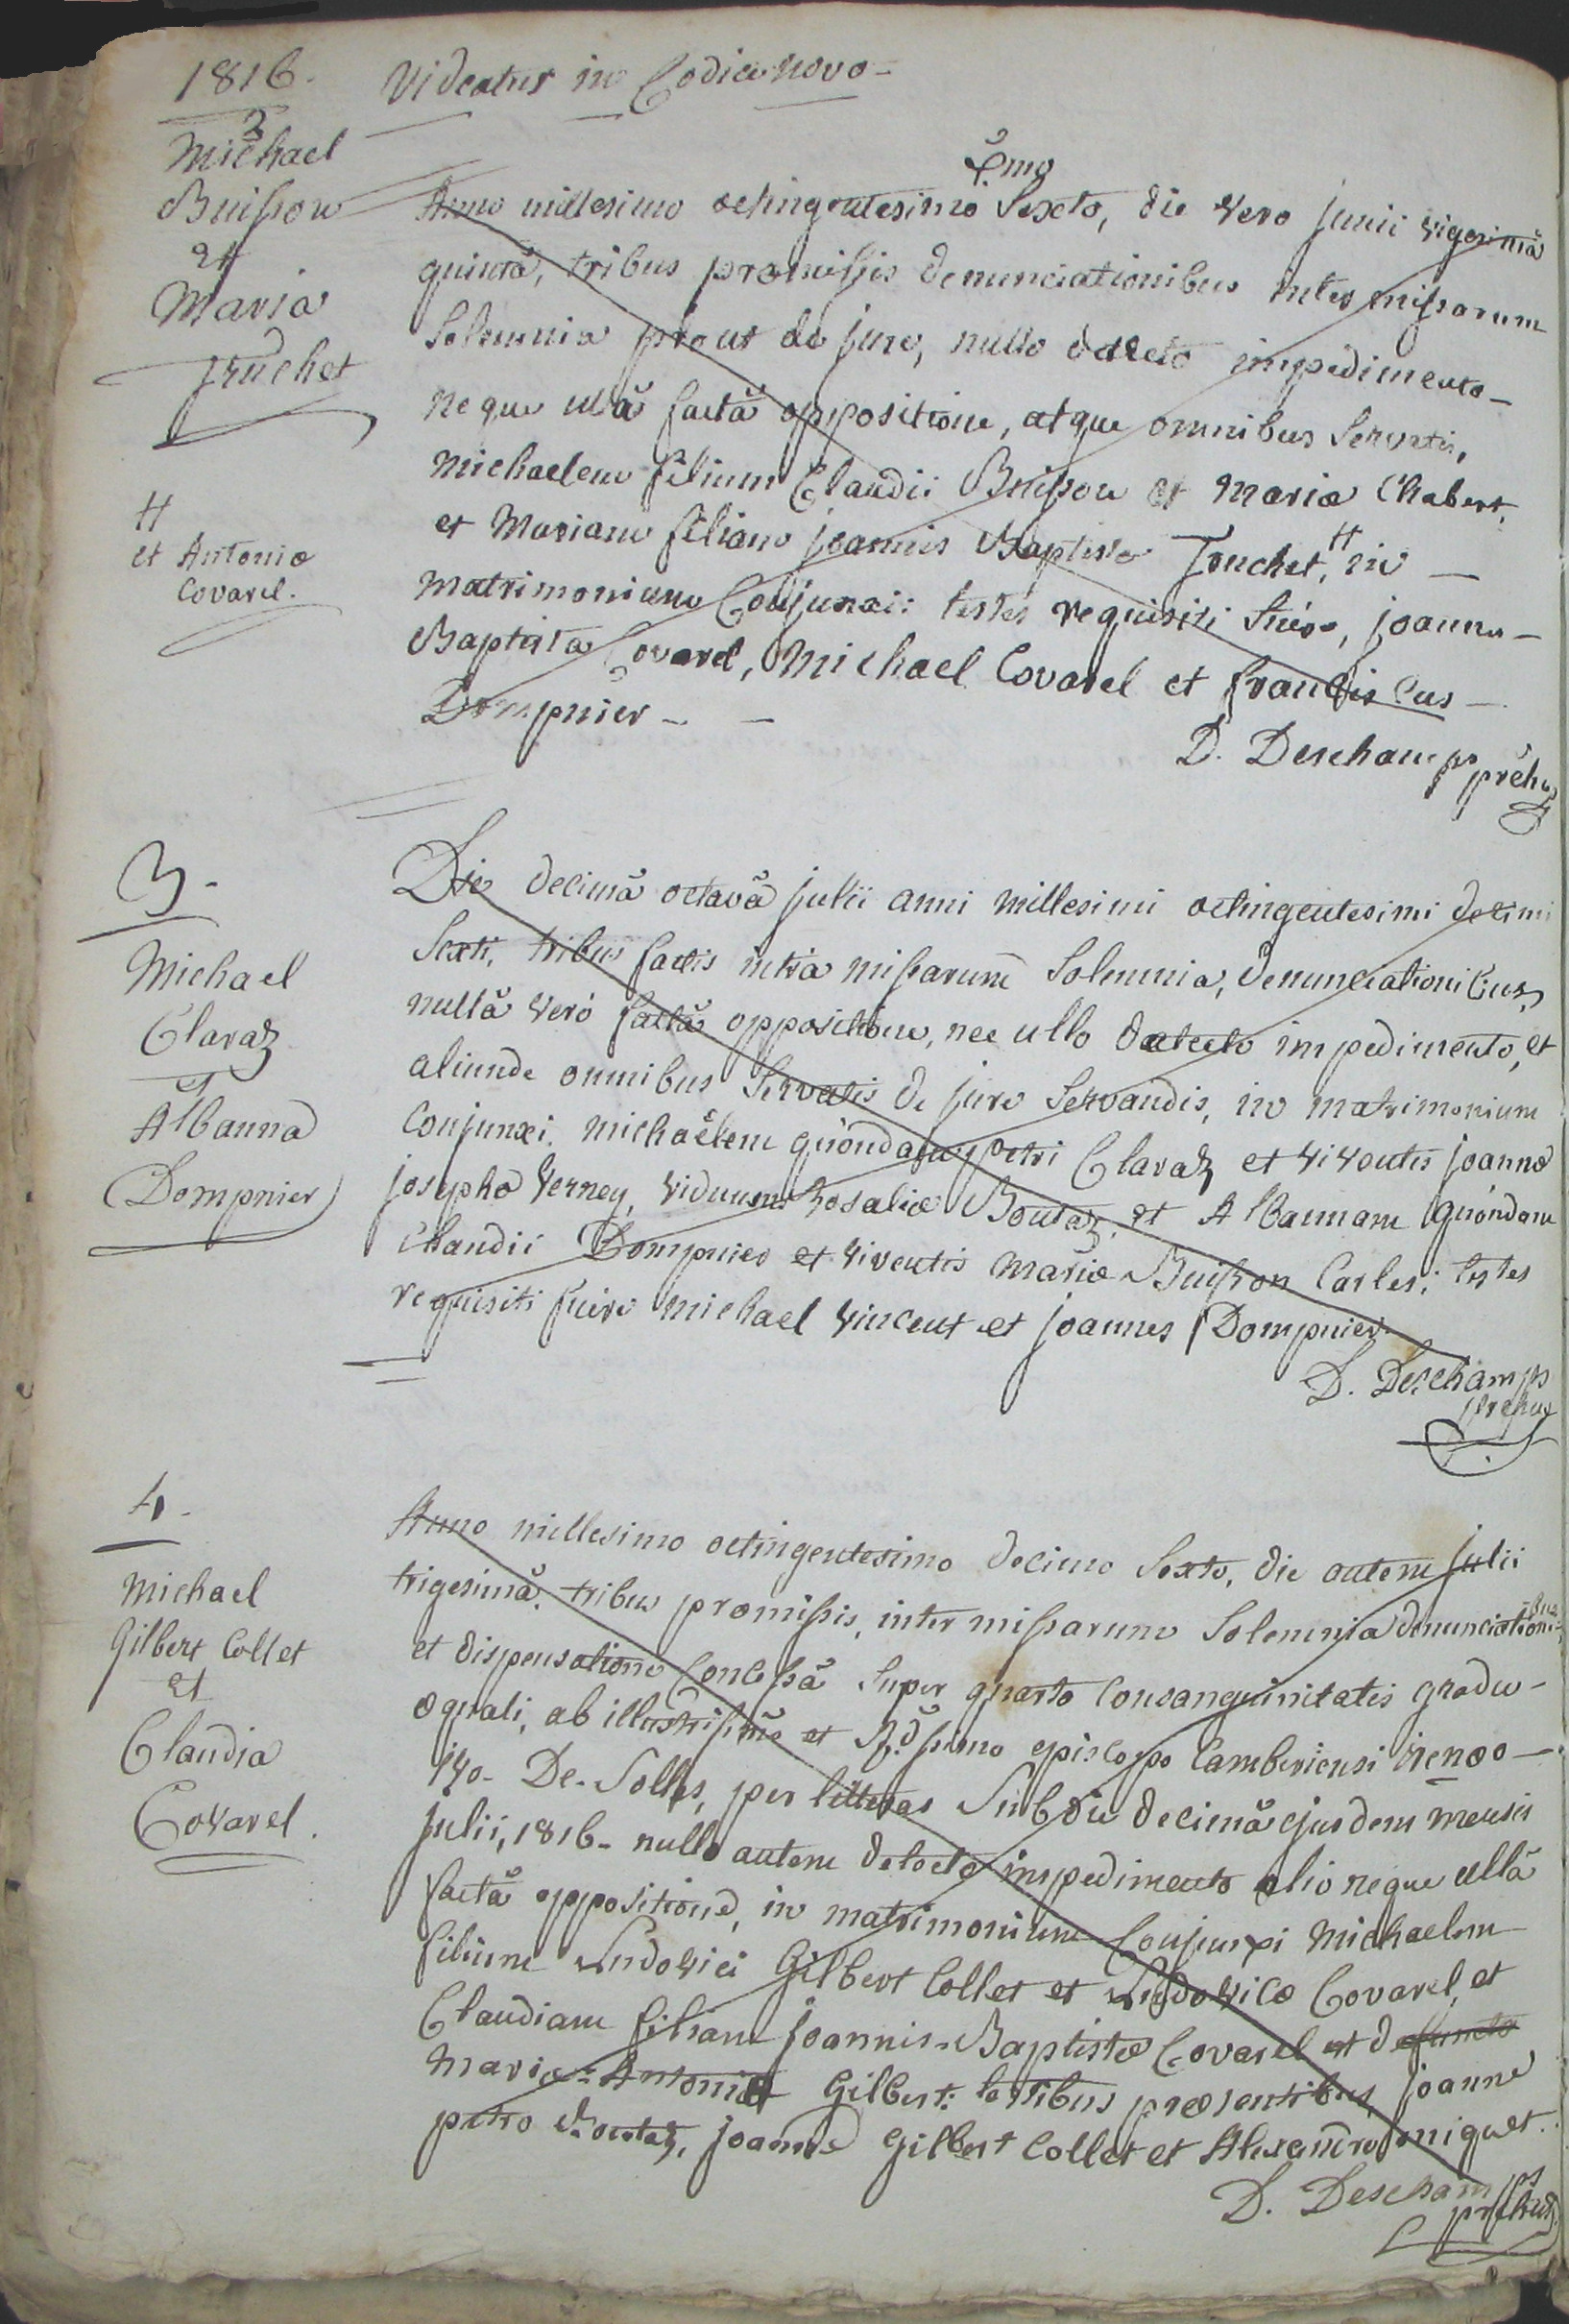 1816.
Videatur in Codice novo -
2
Michael
Buisson
et
Maria
truchet
Xmo
Anno millesimo octingentesimo Sexto, die vero junii vigesimâ
quintâ, tribus præmissis denunciationibus inter missarum
Solemnia prout de jure, nullo detecto impedimento -
neque ullâ factâ oppositione, atque omnibus Servatis,
michaelem filium Claudii Buisson et mariæ Chabert,
et Mariam filiam joannis Baptistæ Truchet, # in -
matrimonium Conjunxi: testes requisiti fuere, joannes -
Baptista Covarel, Michael Covarel et franciscus -
Dompnier - -
D. Deschamps
præhus
#
et Antoniæ
Covarel.
3 -
Michael
Claraz
et
Albanna
Dompnier
Die decimâ octavâ julii anni millesimi octingentesimi decimi
Sexti, tribus factis intra missarum Solemnia, denunciationibus,
nullâ verò factâ oppositione, nec ullo detecto impedimento, et
aliunde omnibus Servatis de jure Servandis, in matrimonium
Conjunxi. michaëlem quondam petri Claraz et viventis joannæ
josephæ Verney, viduum Rosaliæ Boutaz, et Albannam quondam
Claudii Dompnier et viventis mariæ Buisson Carles; testes
requisiti fuere michael vincent et joannes Dompnier.
D. Deschamps
præhus
4.
Michael
Gilbert Collet
et
Claudia
Covarel.
Anno millesimo octingentesimo decimo Sexto, die autem julii
trigesimâ, tribus præmissis, inter missarum Solemnia denunciationibus
et dispensatione Concessâ Super quarto Consanguinitatis gradu -
æquali, ab illustrissimo et Rdssimo episcopo Camberiensi irenæo -
yvo - De - Solles, per litteras Sub die decimâ ejusdem mensis
julii, 1816 - nullo autem detecto impedimento alio neque ullâ
factâ oppositione, in matrimonium Conjunxi Michaelem
filium Ludovici Gilbert Collet et Ludovicæ Covarel, et
Claudiam filiam joannis - Baptistæ Covarel et defunctæ
mariæ - Antoniæ Gilbert: testibus præsentibus, joanne
petro Boutaz, joanne Gilbert Collet et Alexandro miquet.
D. Deschamps
præhus